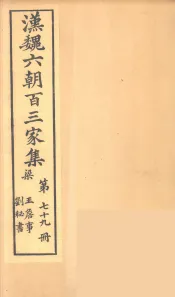 漢魏六朝百三家集
梁
第七十九冊
王詹事
劉秘書